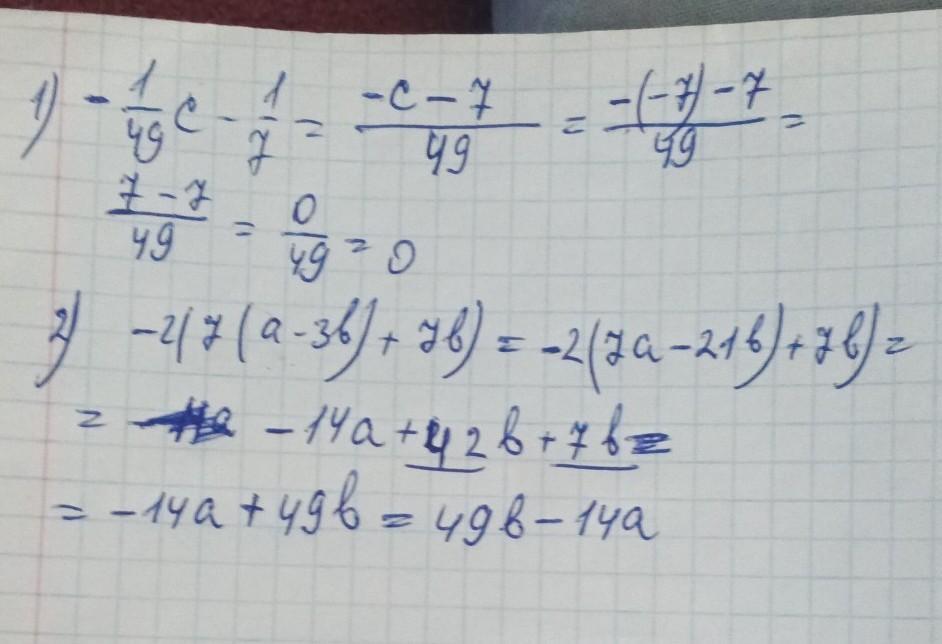 1) -1/49 c - 1/7 = (-c - 7)/49 = (-(-7) - 7)/49 =
(7 - 7)/49 = 0/49 = 0
2) -2(7(a-3b)+7b) = -2(7a-21b)+7b) =
= -14a+42b+7b =
= -14a+49b = 49b-14a